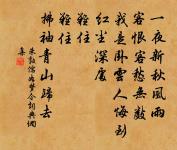 一夜新秋風雨
客恨客愁無數
我是臥雲人悔到
紅塵深處
難住
難住
拂袖青山歸去
朱敦儒如夢令詞典網
集